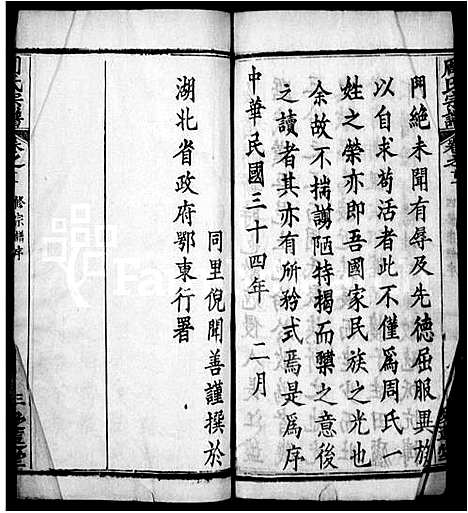 門絶未聞有辱及先德屈服異族
以自求苟活者此不僅爲周氏一
姓之榮亦即吾國家民族之光也
余故不揣謭陋特揭而櫽之意後
之讀者其亦有所矜式焉是爲序
中華民國三十四年 二月
同里倪聞善謹撰於
湖北省政府鄂東行署
周氏宗譜
卷之
修宗譜序